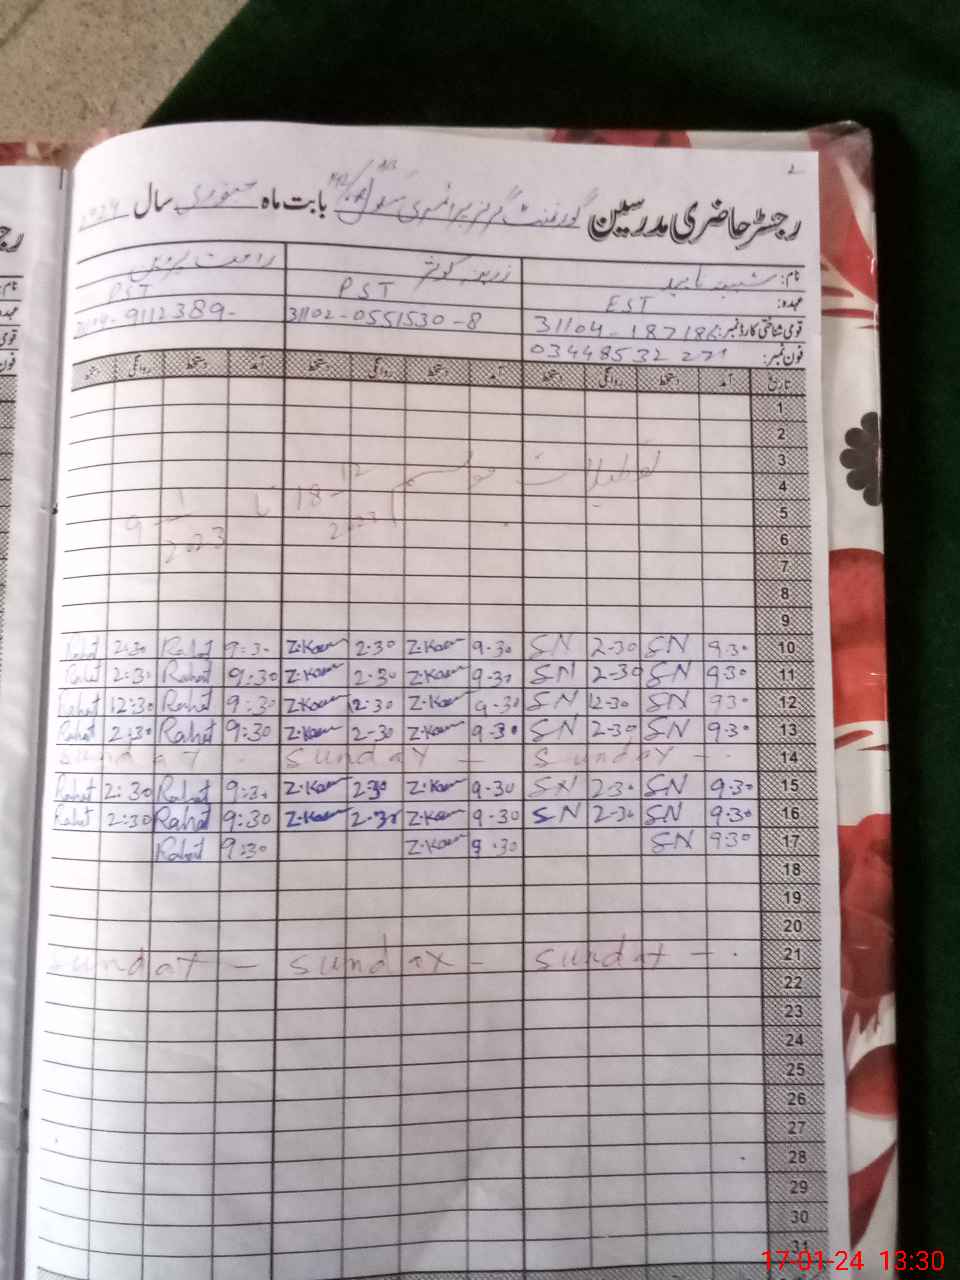 2
رجسٹر حاضری مدرسین گورنمنٹ گرلز پرائمری سکول بابت ماہ جنوری سال 2024
نام: شبینہ ناہید زرینہ کوثر راحت پروین
عہدہ: EST PST PST
قومی شناختی کارڈ نمبر: 31104-18718 31102-0551530-8 9112389-
فون نمبر: 03448532271
تاریخ آمد دستخط روانگی دستخط آمد دستخط روانگی دستخط آمد دستخط روانگی دستخط
1
2
3
4
5
6
7
8
9
تعطیلات موسم 18-12-2023 تا 9-1-2023
10 9.30 SN 2-30 SN 9.30 Z.Kaur 2.30 Z.Kaur 9:30 Rahat 2:30 Rahat
11 9.30 SN 2-30 SN 9.30 Z.Kaur 2.30 Z.Kaur 9:30 Rahat 2:30 Rahat
12 930 SN 12-30 SN 9-30 Z.Kaur 12:30 Z.Kaur 9:30 Rahat 12:30 Rahat
13 9.30 SN 2-30 SN 9.30 Z.Kaur 2-30 Z.Kaur 9:30 Rahat 2:30 Rahat
14 Sunday - Sunday - Sunday
15 9.30 SN 2-30 SN 9.30 Z.Kaur 2.30 Z.Kaur 9:30 Rahat 2:30 Rahat
16 9.30 SN 2-30 SN 9.30 Z.Kaur 2.30 Z.Kaur 9:30 Rahat 2:30 Rahat
17 9.30 SN 9.30 Z.Kaur 9:30 Rahat
18
19
20
21 Sunday - Sunday - Sunday -
22
23
24
25
26
27
28
29
30
31
17-01-24 13:30